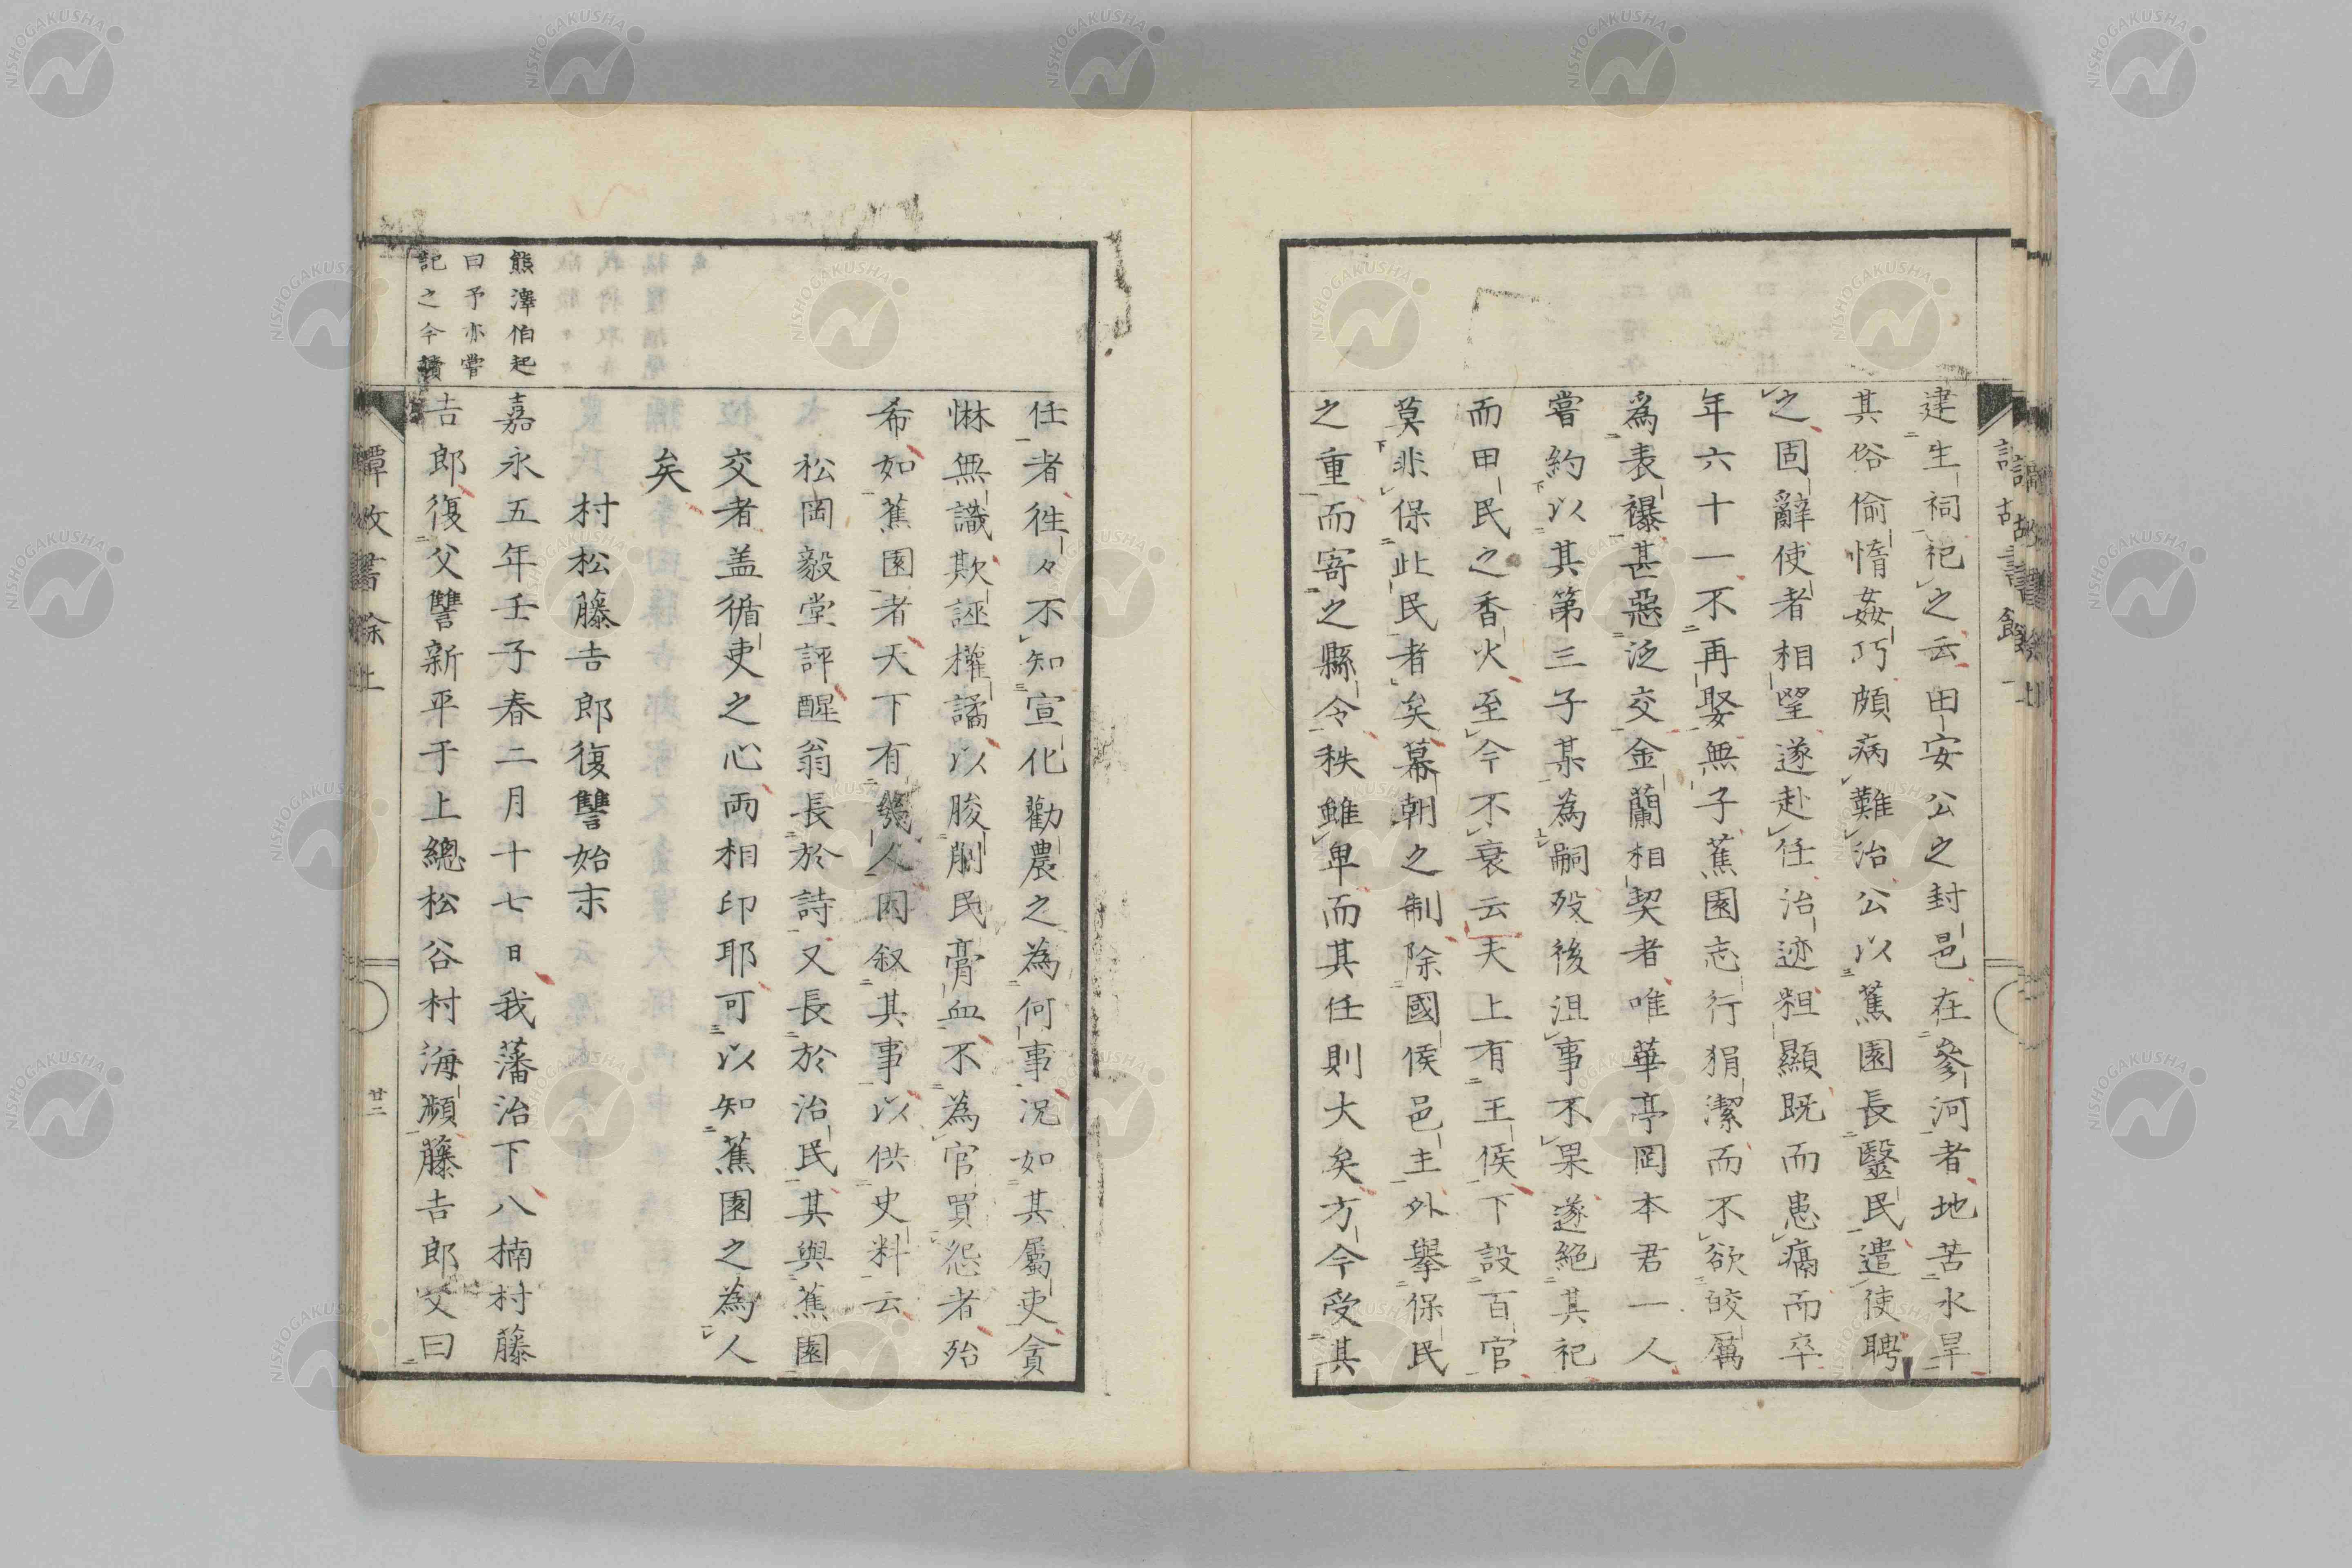 建生祠祀之云田安公之封邑在參河者地苦水旱
其俗偷惰姦巧頗病難治公以蕉園長毉民遣使聘
之固辭使者相望遂赴任治迹粗顯既而患痛而卒
年六十一不再娶無子蕉園志行狷潔而不欲皎厲
爲表襮甚惡泛交金蘭相契者唯華亭岡本君一人
嘗約以其第三子某為嗣歿後沮事不果遂絕其祀
而甲民之香火至今不衰云夫上有王侯下設百官
莫非保此民者矣幕朝之制除國侯邑主外舉保民
之重而寄之縣令秩雖卑而其任則大矣方今受其
任者徃々不知宣化勸農之為何事況如其屬吏貪
惏無識欺誣權譎以朘削民膏血不為官買怨者殆
希如蕉園者天下有幾人因叙其事以供史料云
松岡毅堂評醒翁長於詩又長於治民其與蕉園
交者盖循吏之心両相印耶可以知蕉園之為人
矣
村松藤吉郎復讐始末
嘉永五年壬子春二月十七日我藩治下八楠村藤
吉郎復父讐新平于上總松谷村海瀕藤吉郎父曰
熊澤伯起
曰予亦嘗
記之今讀
廿二
NISHOGAKUSHA